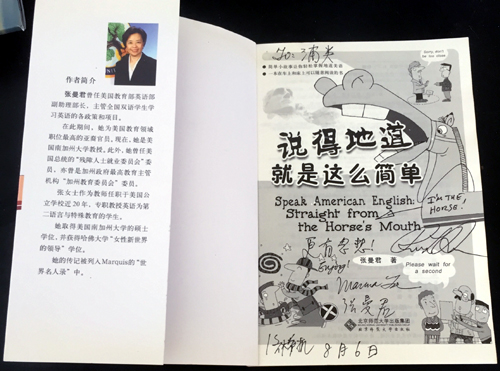 作者简介
张曼君曾任美国教育部英语部
副助理部长，主管全国双语学生学
习英语的各政策和项目。
在此期间，她为美国教育领域
职位最高的亚裔官员。现在，她是美
国南加州大学教授。此外，她曾任美
国总统的“残障人士就业委员会”委
员，亦曾是加州政府最高教育主管
机构“加州教育委员会”委员。
张女士作为教师任职于美国公
立学校近20年，专职教授英语为第
二语言与特殊教育的学生。
她取得美国南加州大学的硕士
学位，并获得哈佛大学“女性新世界
的领导”学位。
她的传记被列入Marquis的“世
界名人录”中。
To:
说得地道
就是这么简单
Speak American English:
Straight from
the Horse's Mouth
I'm THE
HORSE!
更有思想!
Enjoy!
张曼君 著
Please wait for
a second
张曼君
北京师范大学出版集团
8月6日